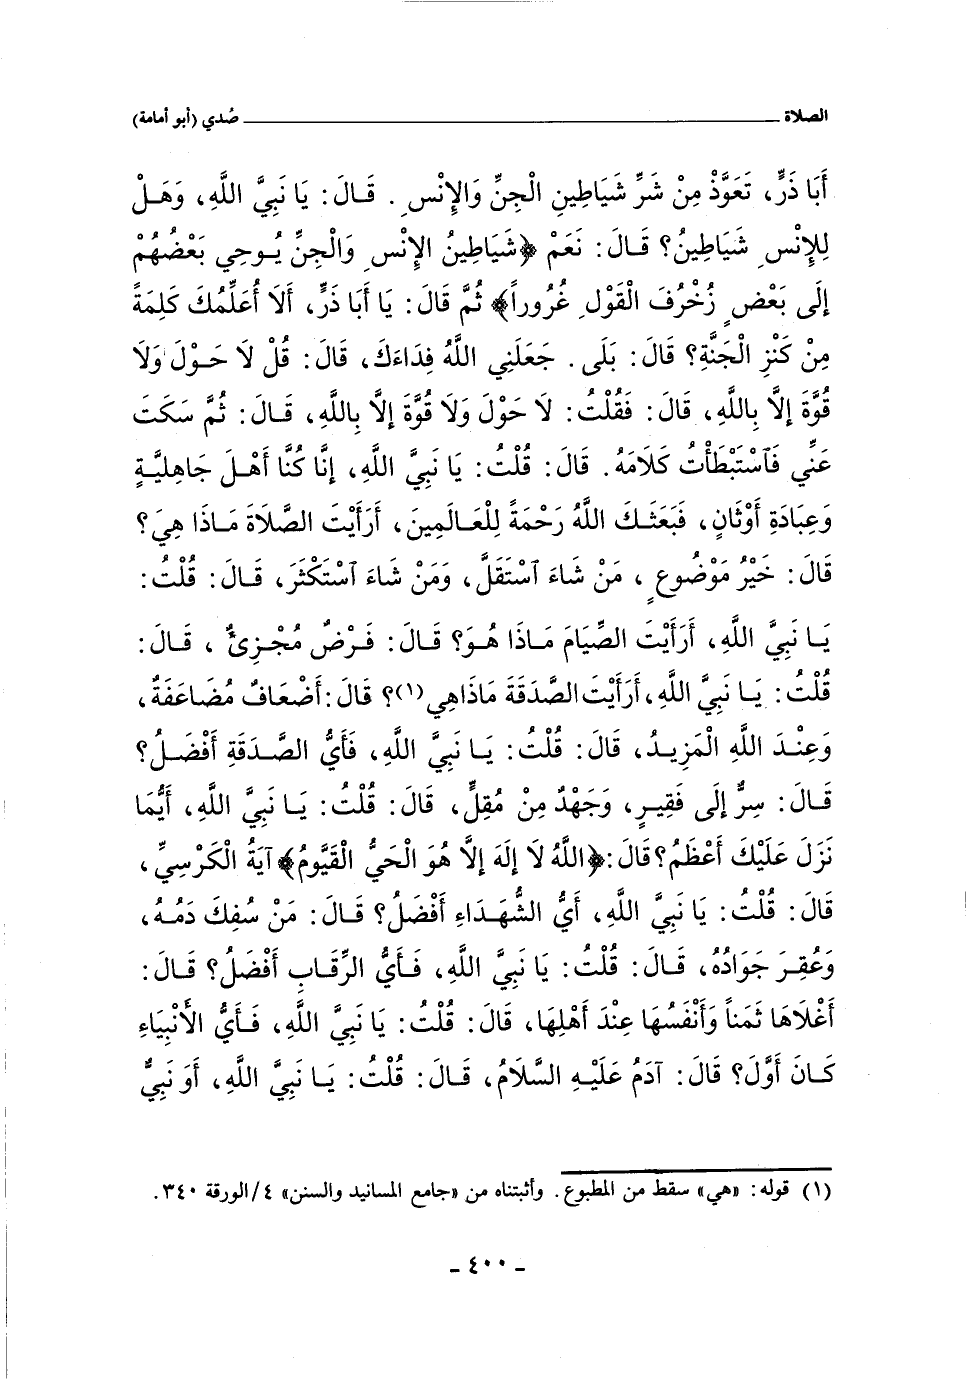 الصلاة ــــــــــ صُدي (أبو أمامة)
أَبَا ذَرٍّ، تَعَوَّذْ مِنْ شَرِّ شَيَاطِينِ الْجِنِّ وَالإِنْسِ. قَالَ: يَا نَبِيَّ اللَّهِ، وَهَلْ
لِلإِنْسِ شَيَاطِينُ؟ قَالَ: نَعَمْ ﴿شَيَاطِينُ الإِنْسِ وَالْجِنِّ يُوحِي بَعْضُهُمْ
إِلَى بَعْضٍ زُخْرُفَ الْقَوْلِ غُرُوراً﴾ ثُمَّ قَالَ: يَا أَبَا ذَرٍّ، أَلَا أُعَلِّمُكَ كَلِمَةً
مِنْ كَنْزِ الْجَنَّةِ؟ قَالَ: بَلَى. جَعَلَنِي اللَّهُ فِدَاءَكَ، قَالَ: قُلْ لَا حَوْلَ وَلَا
قُوَّةَ إِلَّا بِاللَّهِ، قَالَ: فَقُلْتُ: لَا حَوْلَ وَلَا قُوَّةَ إِلَّا بِاللَّهِ، قَالَ: ثُمَّ سَكَتَ
عَنِّي فَٱسْتَبْطَأْتُ كَلَامَهُ. قَالَ: قُلْتُ: يَا نَبِيَّ اللَّهِ، إِنَّا كُنَّا أَهْلَ جَاهِلِيَّةٍ
وَعِبَادَةِ أَوْثَانٍ، فَبَعَثَكَ اللَّهُ رَحْمَةً لِلْعَالَمِينَ، أَرَأَيْتَ الصَّلَاةَ مَاذَا هِيَ؟
قَالَ: خَيْرُ مَوْضُوعٍ، مَنْ شَاءَ ٱسْتَقَلَّ، وَمَنْ شَاءَ ٱسْتَكْثَرَ، قَالَ: قُلْتُ:
يَا نَبِيَّ اللَّهِ، أَرَأَيْتَ الصِّيَامَ مَاذَا هُوَ؟ قَالَ: فَرْضٌ مُجْزِئٌ، قَالَ:
قُلْتُ: يَا نَبِيَّ اللَّهِ، أَرَأَيْتَ الصَّدَقَةَ مَاذَاهِي(١)؟ قَالَ: أَضْعَافٌ مُضَاعَفَةٌ،
وَعِنْدَ اللَّهِ الْمَزِيدُ، قَالَ: قُلْتُ: يَا نَبِيَّ اللَّهِ، فَأَيُّ الصَّدَقَةِ أَفْضَلُ؟
قَالَ: سِرٌّ إِلَى فَقِيرٍ، وَجَهْدٌ مِنْ مُقِلٍّ، قَالَ: قُلْتُ: يَا نَبِيَّ اللَّهِ، أَيُّمَا
نَزَلَ عَلَيْكَ أَعْظَمُ؟ قَالَ: ﴿اللَّهُ لَا إِلَهَ إِلَّا هُوَ الْحَيُّ الْقَيُّومُ﴾ آيَةُ الْكُرْسِيِّ،
قَالَ: قُلْتُ: يَا نَبِيَّ اللَّهِ، أَيُّ الشُّهَدَاءِ أَفْضَلُ؟ قَالَ: مَنْ سُفِكَ دَمُهُ،
وَعُقِرَ جَوَادُهُ، قَالَ: قُلْتُ: يَا نَبِيَّ اللَّهِ، فَأَيُّ الرِّقَابِ أَفْضَلُ؟ قَالَ:
أَغْلَاهَا ثَمَناً وَأَنْفَسُهَا عِنْدَ أَهْلِهَا، قَالَ: قُلْتُ: يَا نَبِيَّ اللَّهِ، فَأَيُّ الأَنْبِيَاءِ
كَانَ أَوَّلَ؟ قَالَ: آدَمُ عَلَيْهِ السَّلَامُ، قَالَ: قُلْتُ: يَا نَبِيَّ اللَّهِ، أَوَ نَبِيٌّ
(١) قوله: «هي» سقط من المطبوع. وأثبتناه من «جامع المسانيد والسنن» ٤/الورقة ٣٤٠.
- ٤٠٠ -